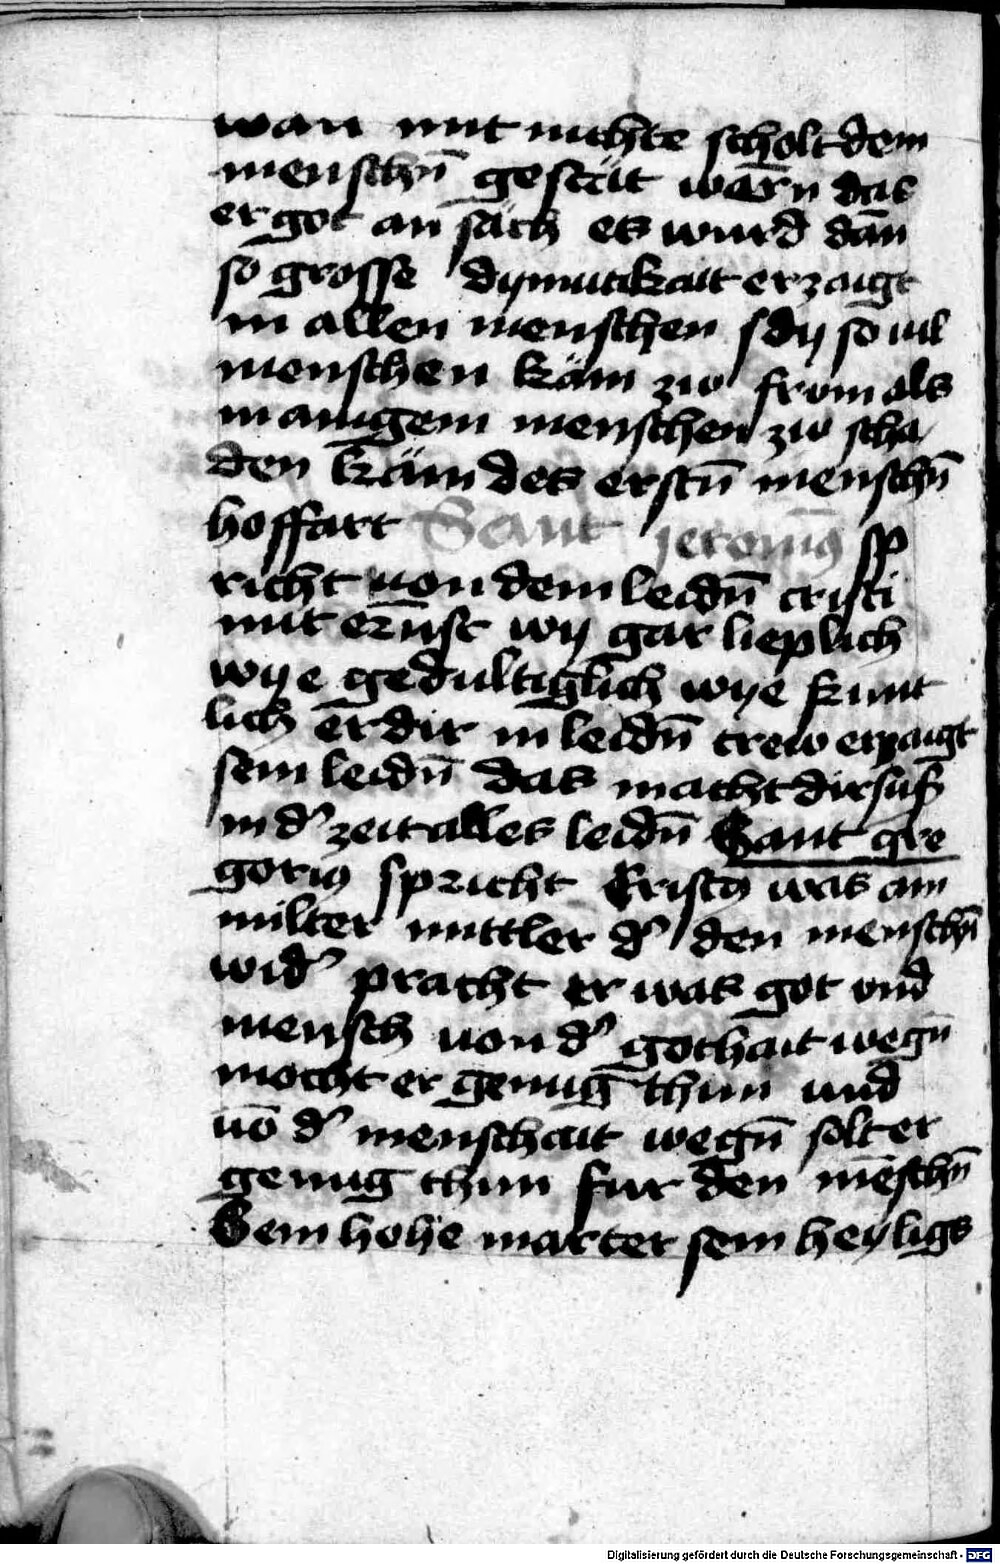 wan mit nichte scholt dem
menschn̄ gestät wär̄n das
er got an säch es wurd dān
so grosse dymutikait erzaigt
in allen menschen s dy so uil
menschen käm zw from als
manigem menschen zw scha
den käm des erstn̄ menschn̄
hoffart Sant jeronim9 sp
richt uon dem leidn̄ cristi
mit ernst wy gar lieplich
wye gedultiglich wye kunt
lich er dir in leidn̄ trew erzaigt
sein leidn̄ das macht dir süß
in d' zeit alles leidn̄ Sant gre
gori9 spricht Crist9 was ain
milter mittler d' den menschn̄
wid' pracht er was got vnd
mensch uon d' gothait wegn̄
mocht er genug thun und
uō d' menschait wegn̄ solt er
genug thun fur den mēschn̄
Sein hohe marter sein heyligs
Digitalisierung gefördert durch die Deutsche Forschungsgemeinschaft - DFG